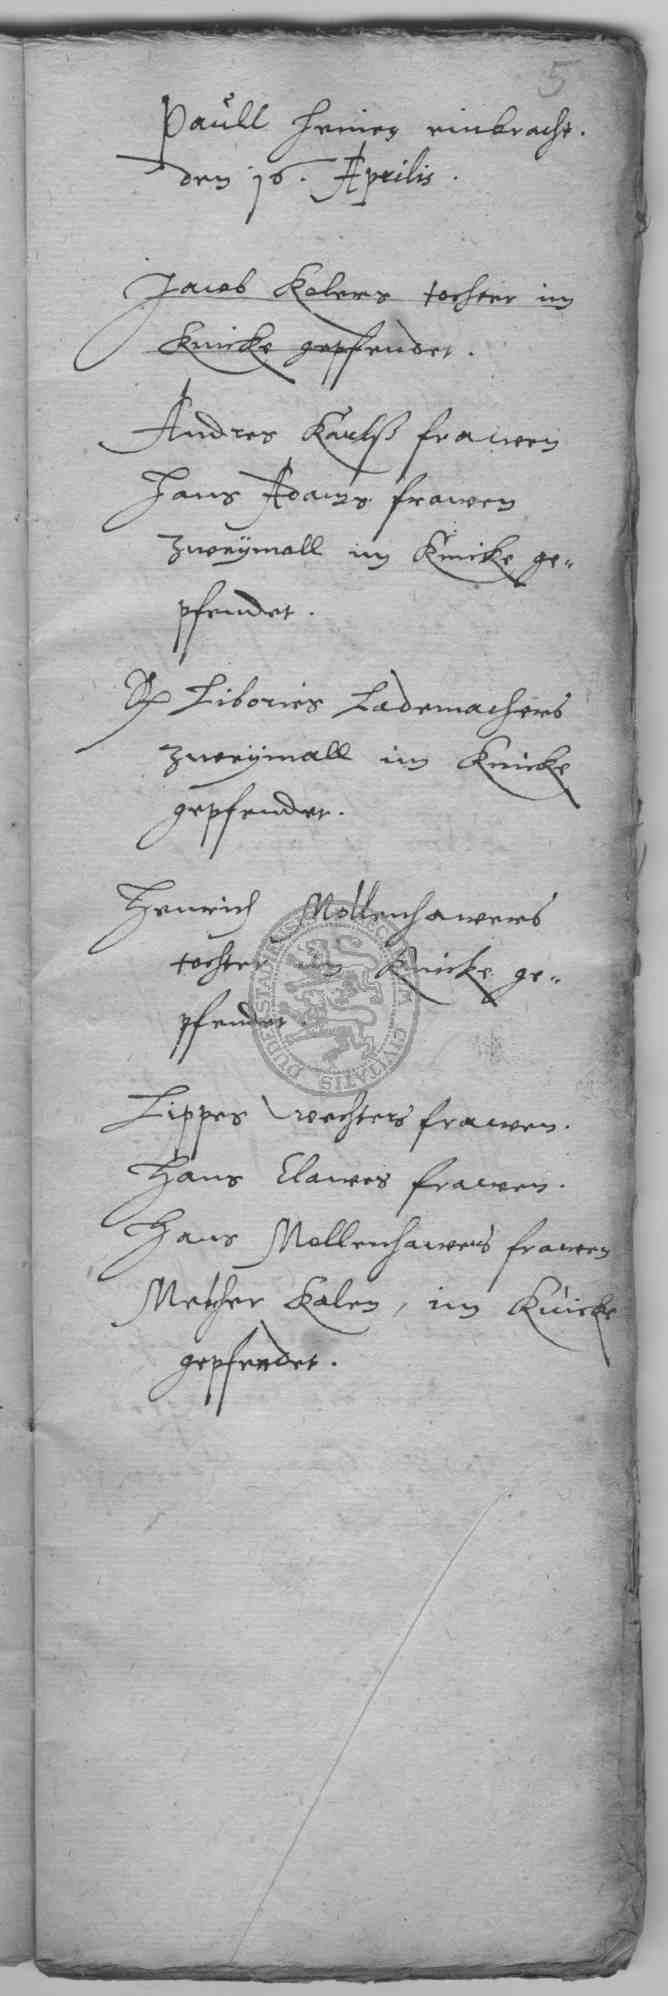 5
Paull Heinen einbracht.
den 16. Aprilis.
Jacob Kolers tochter im
Knicke gepfendet.
Andres Karlß frawen
Hans Adams frawen
zweÿmall im Knicke ge-
pfendet.
Libories Lademachers
zweÿmall im Knicke
gepfendet.
Henrich Mollenhawers
tochter im Knicke ge-
pfendet.
Lippes wechters frawen.
Hans Clawes frawen.
Hans Mollenhawers frawen
Kolen, im Knicke
gepfendet.
DUDERSTADIENSIS CIVITATIS